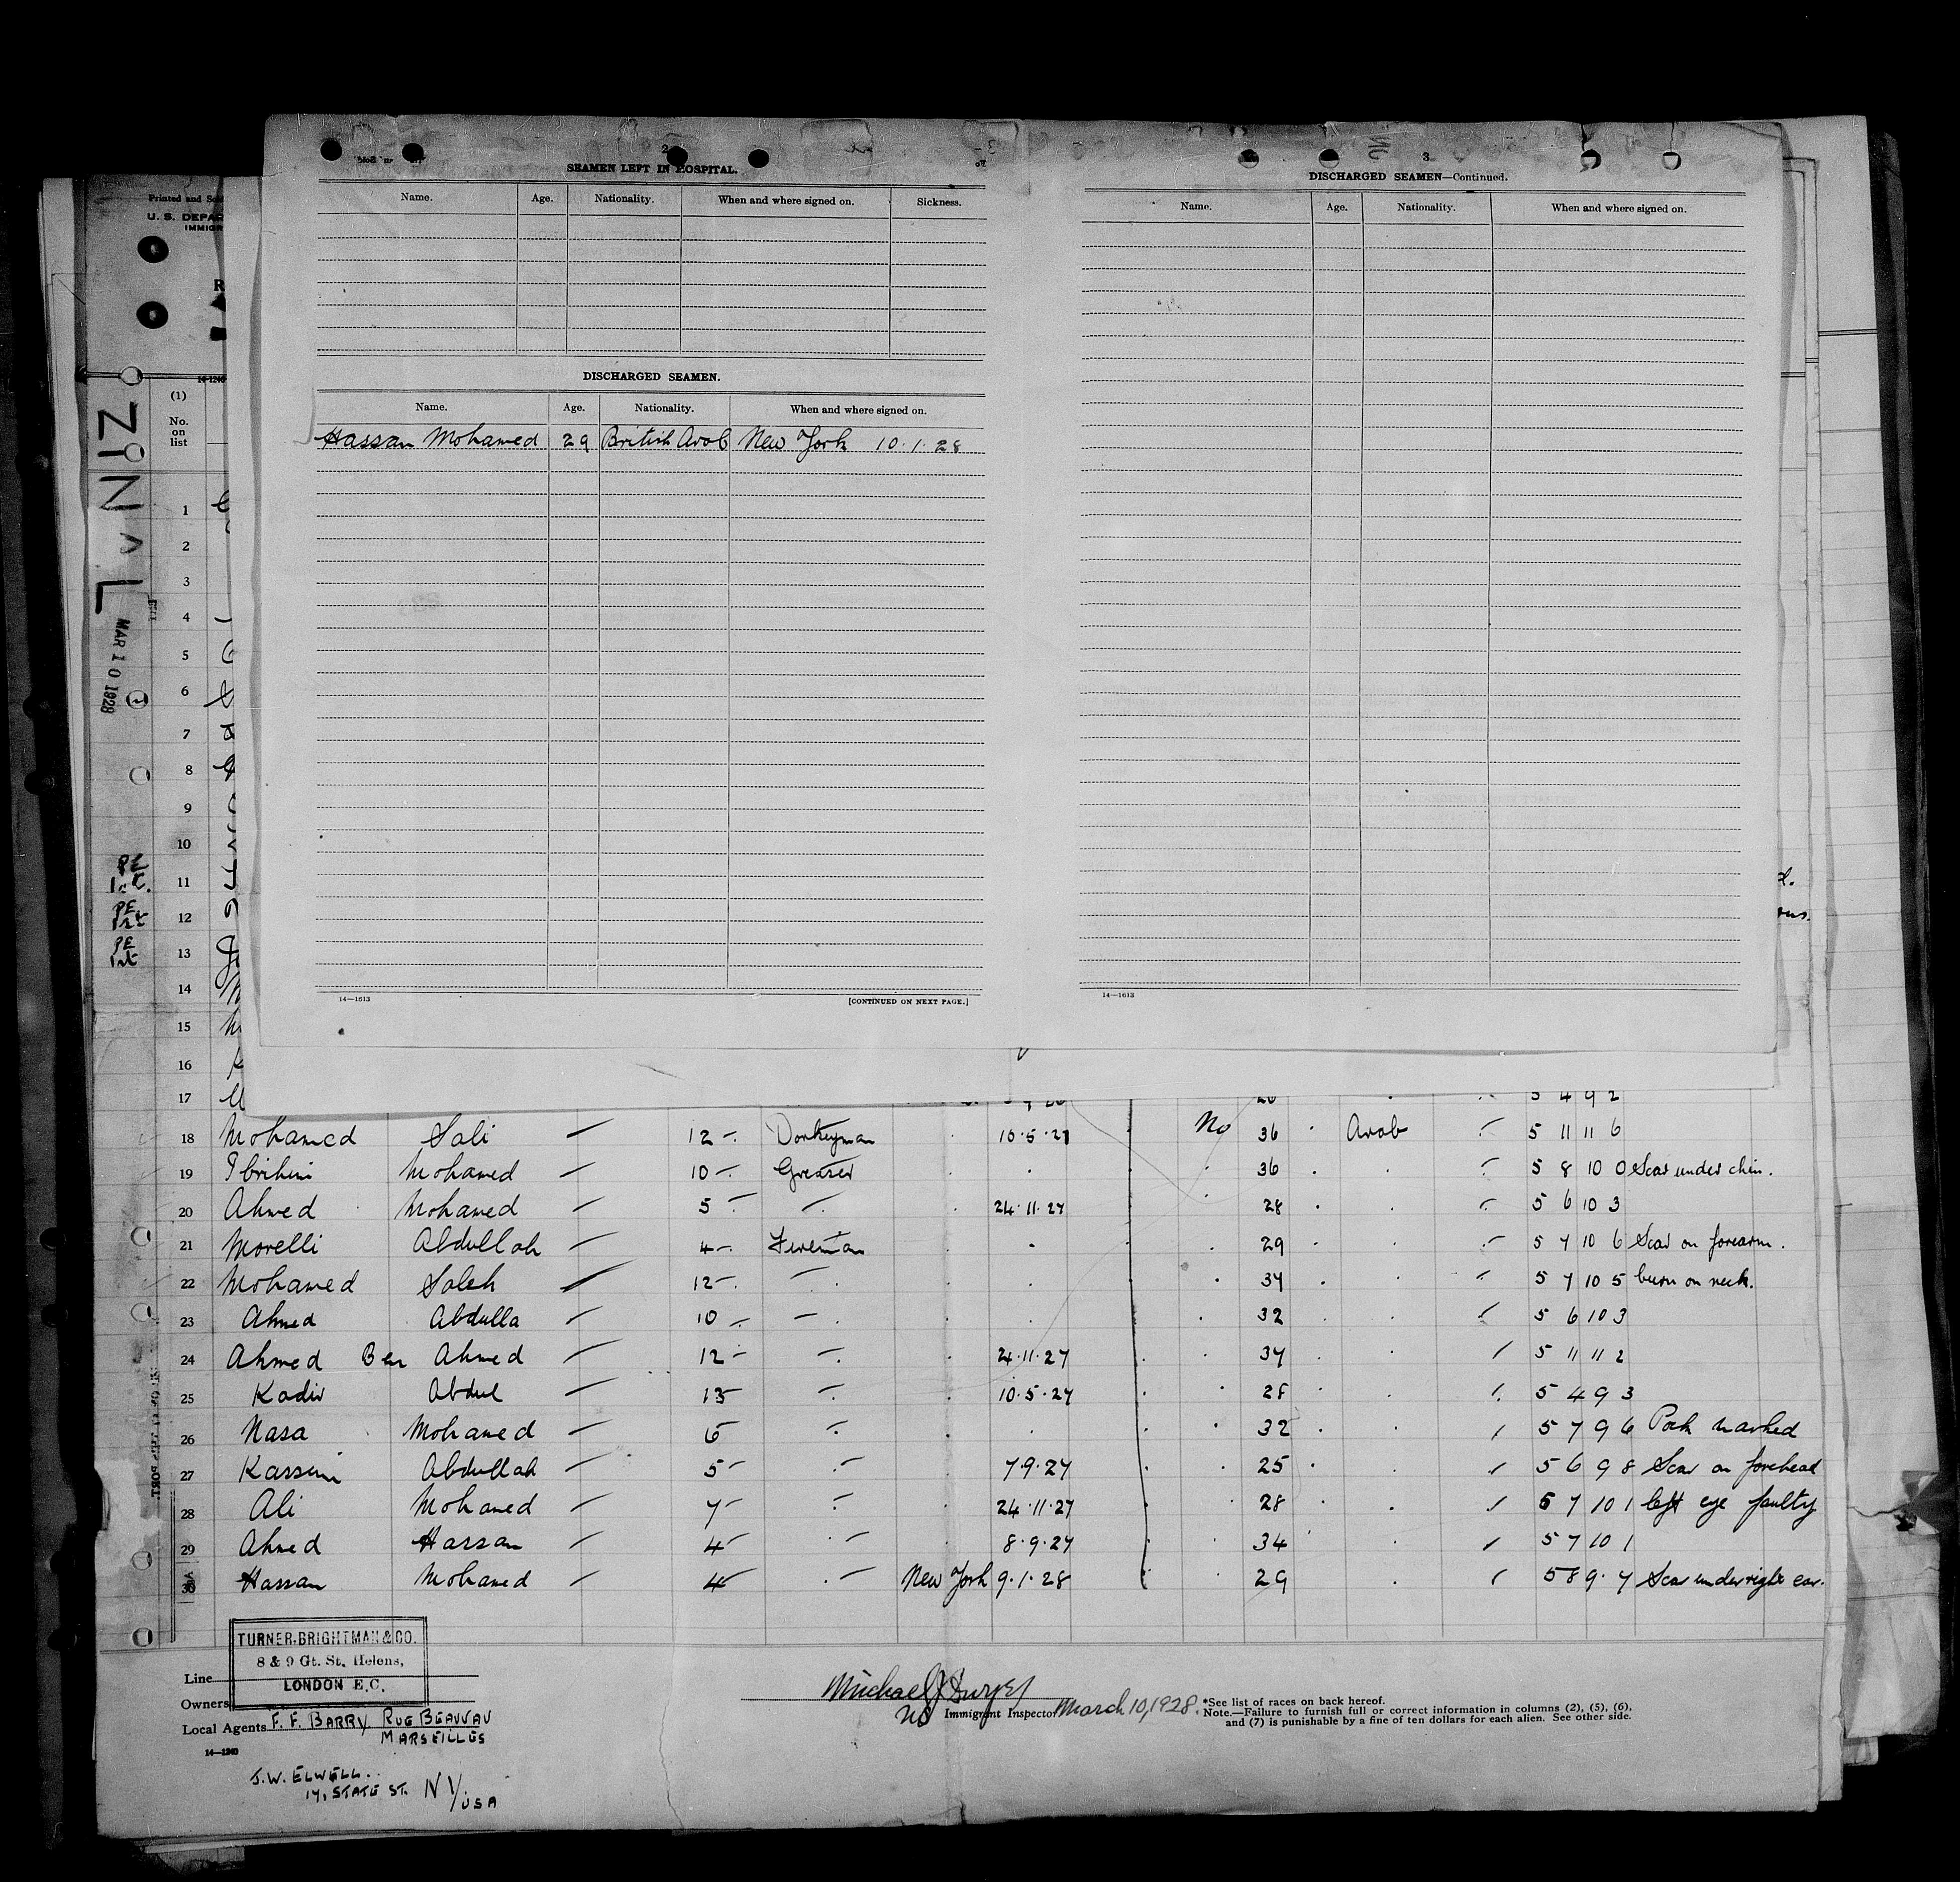 2
SEAMEN LEFT IN HOSPITAL.
Name. Age. Nationality. When and where signed on. Sickness.
DISCHARGED SEAMEN.
Name. Age. Nationality. When and where signed on.
Hassan Mohamed 29 British Arab New York 10.1.28
14—1613
[CONTINUED ON NEXT PAGE.]
3
DISCHARGED SEAMEN—Continued.
Name. Age. Nationality. When and where signed on.
14—1613
Printed and Sold
U. S. DEPAR
IMMIGR
14-1240
ZINAL
MAR 10 1928
(1)
No.
on
list
1
2
3
4
5
6
7
8
9
10
11
12
13
14
15
16
17 5 4 9 2
18 Mohamed Sali 12 Donkeyman 10.5.27 No 36 Arab 5 11 11 6
19 Ibrihim Mohamed 10 Greaser 36 5 8 10 0 Scar under chin.
20 Ahmed Mohamed 5 24.11.27 28 5 6 10 3
21 Morelli Abdullah 4 Fireman 29 5 7 10 6 Scar on forearm.
22 Mohamed Saleh 12 37 5 7 10 5 burn on neck.
23 Ahmed Abdulla 10 32 5 6 10 3
24 Ahmed Ben Ahmed 12 24.11.27 37 5 11 11 2
25 Kadir Abdul 13 10.5.27 28 5 4 9 3
26 Nasa Mohamed 6 32 5 7 9 6 Pock marked
27 Kassim Abdullah 5 7.9.27 25 5 6 9 8 Scar on forehead
28 Ali Mohamed 7 24.11.27 28 5 7 10 1 left eye faulty
29 Ahmed Hassan 4 8.9.27 34 5 7 10 1
30 Hassan Mohamed 4 New York 9.1.28 29 5 8 9.7 Scar under right ear.
TURNER.BRIGHTMAN & CO.
8 & 9 Gt. St. Helens,
LONDON E.C.
Line
Owners
Local Agents F. F. BARRY RUE BEAUVAU
MARSEILLES
14—1240
J.W. ELWELL.
17, STATE ST. NY/USA
Immigrant Inspector March 10, 1928.
*See list of races on back hereof.
Note.—Failure to furnish full or correct information in columns (2), (5), (6),
and (7) is punishable by a fine of ten dollars for each alien. See other side.